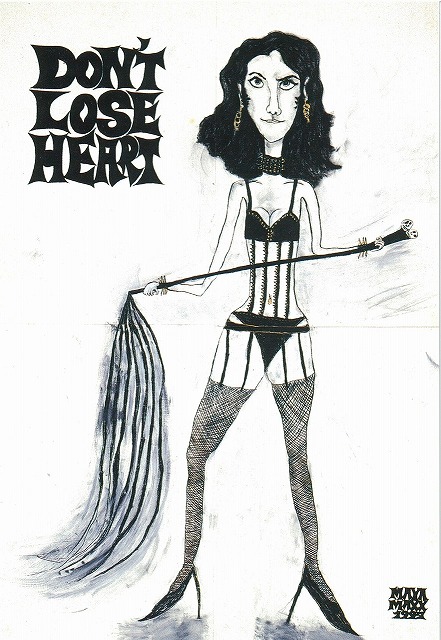 DON'T
LOSE
HEART
MAYA
MAXX
1997